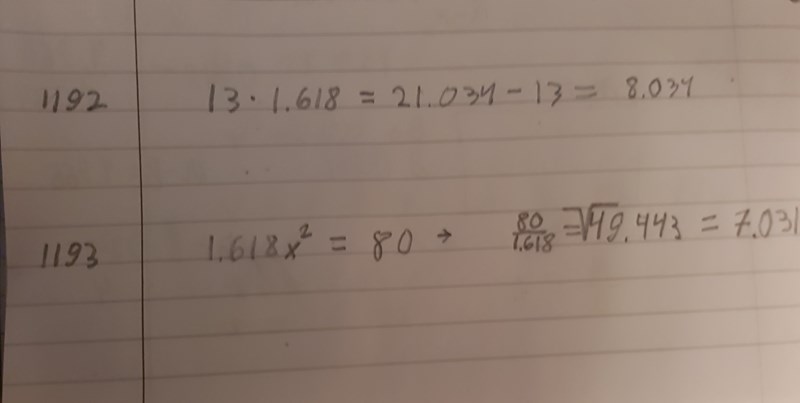 1192 13 · 1.618 = 21.034 - 13 = 8.034
1193 1.618x² = 80 → 80/1.618 = √49.443 = 7.031